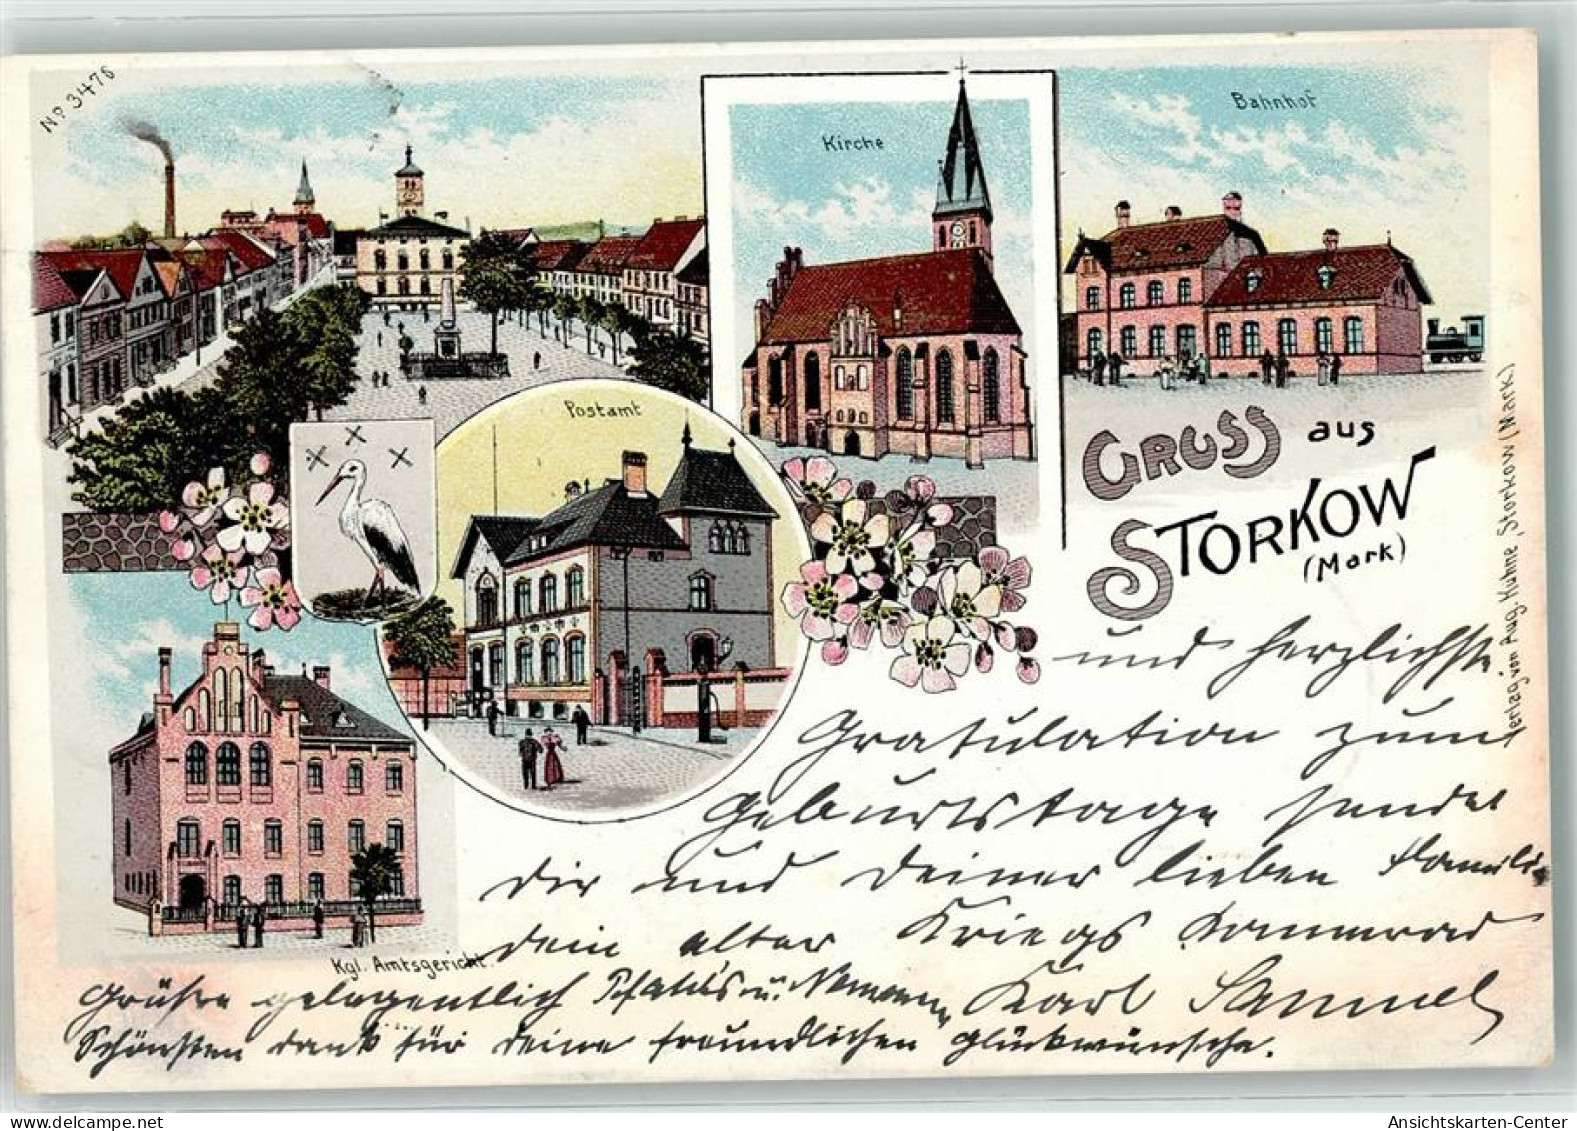 No 3476
Kirche
Bahnhof
Postamt
Gruss aus
Storkow
(Mark)
Kgl. Amtsgericht.
Verlag von Aug. Hühne, Storkow (Mark.)
und herzlichste
Gratulation zum
Geburtstage sendet
dir und deiner lieben Famili
dein alter Kriegs Kammrad
Grüße gelegentlich u. Karl Samuel
Schönsten dank für deine freundlichen glückwünsche.
Ansichtskarten-Center